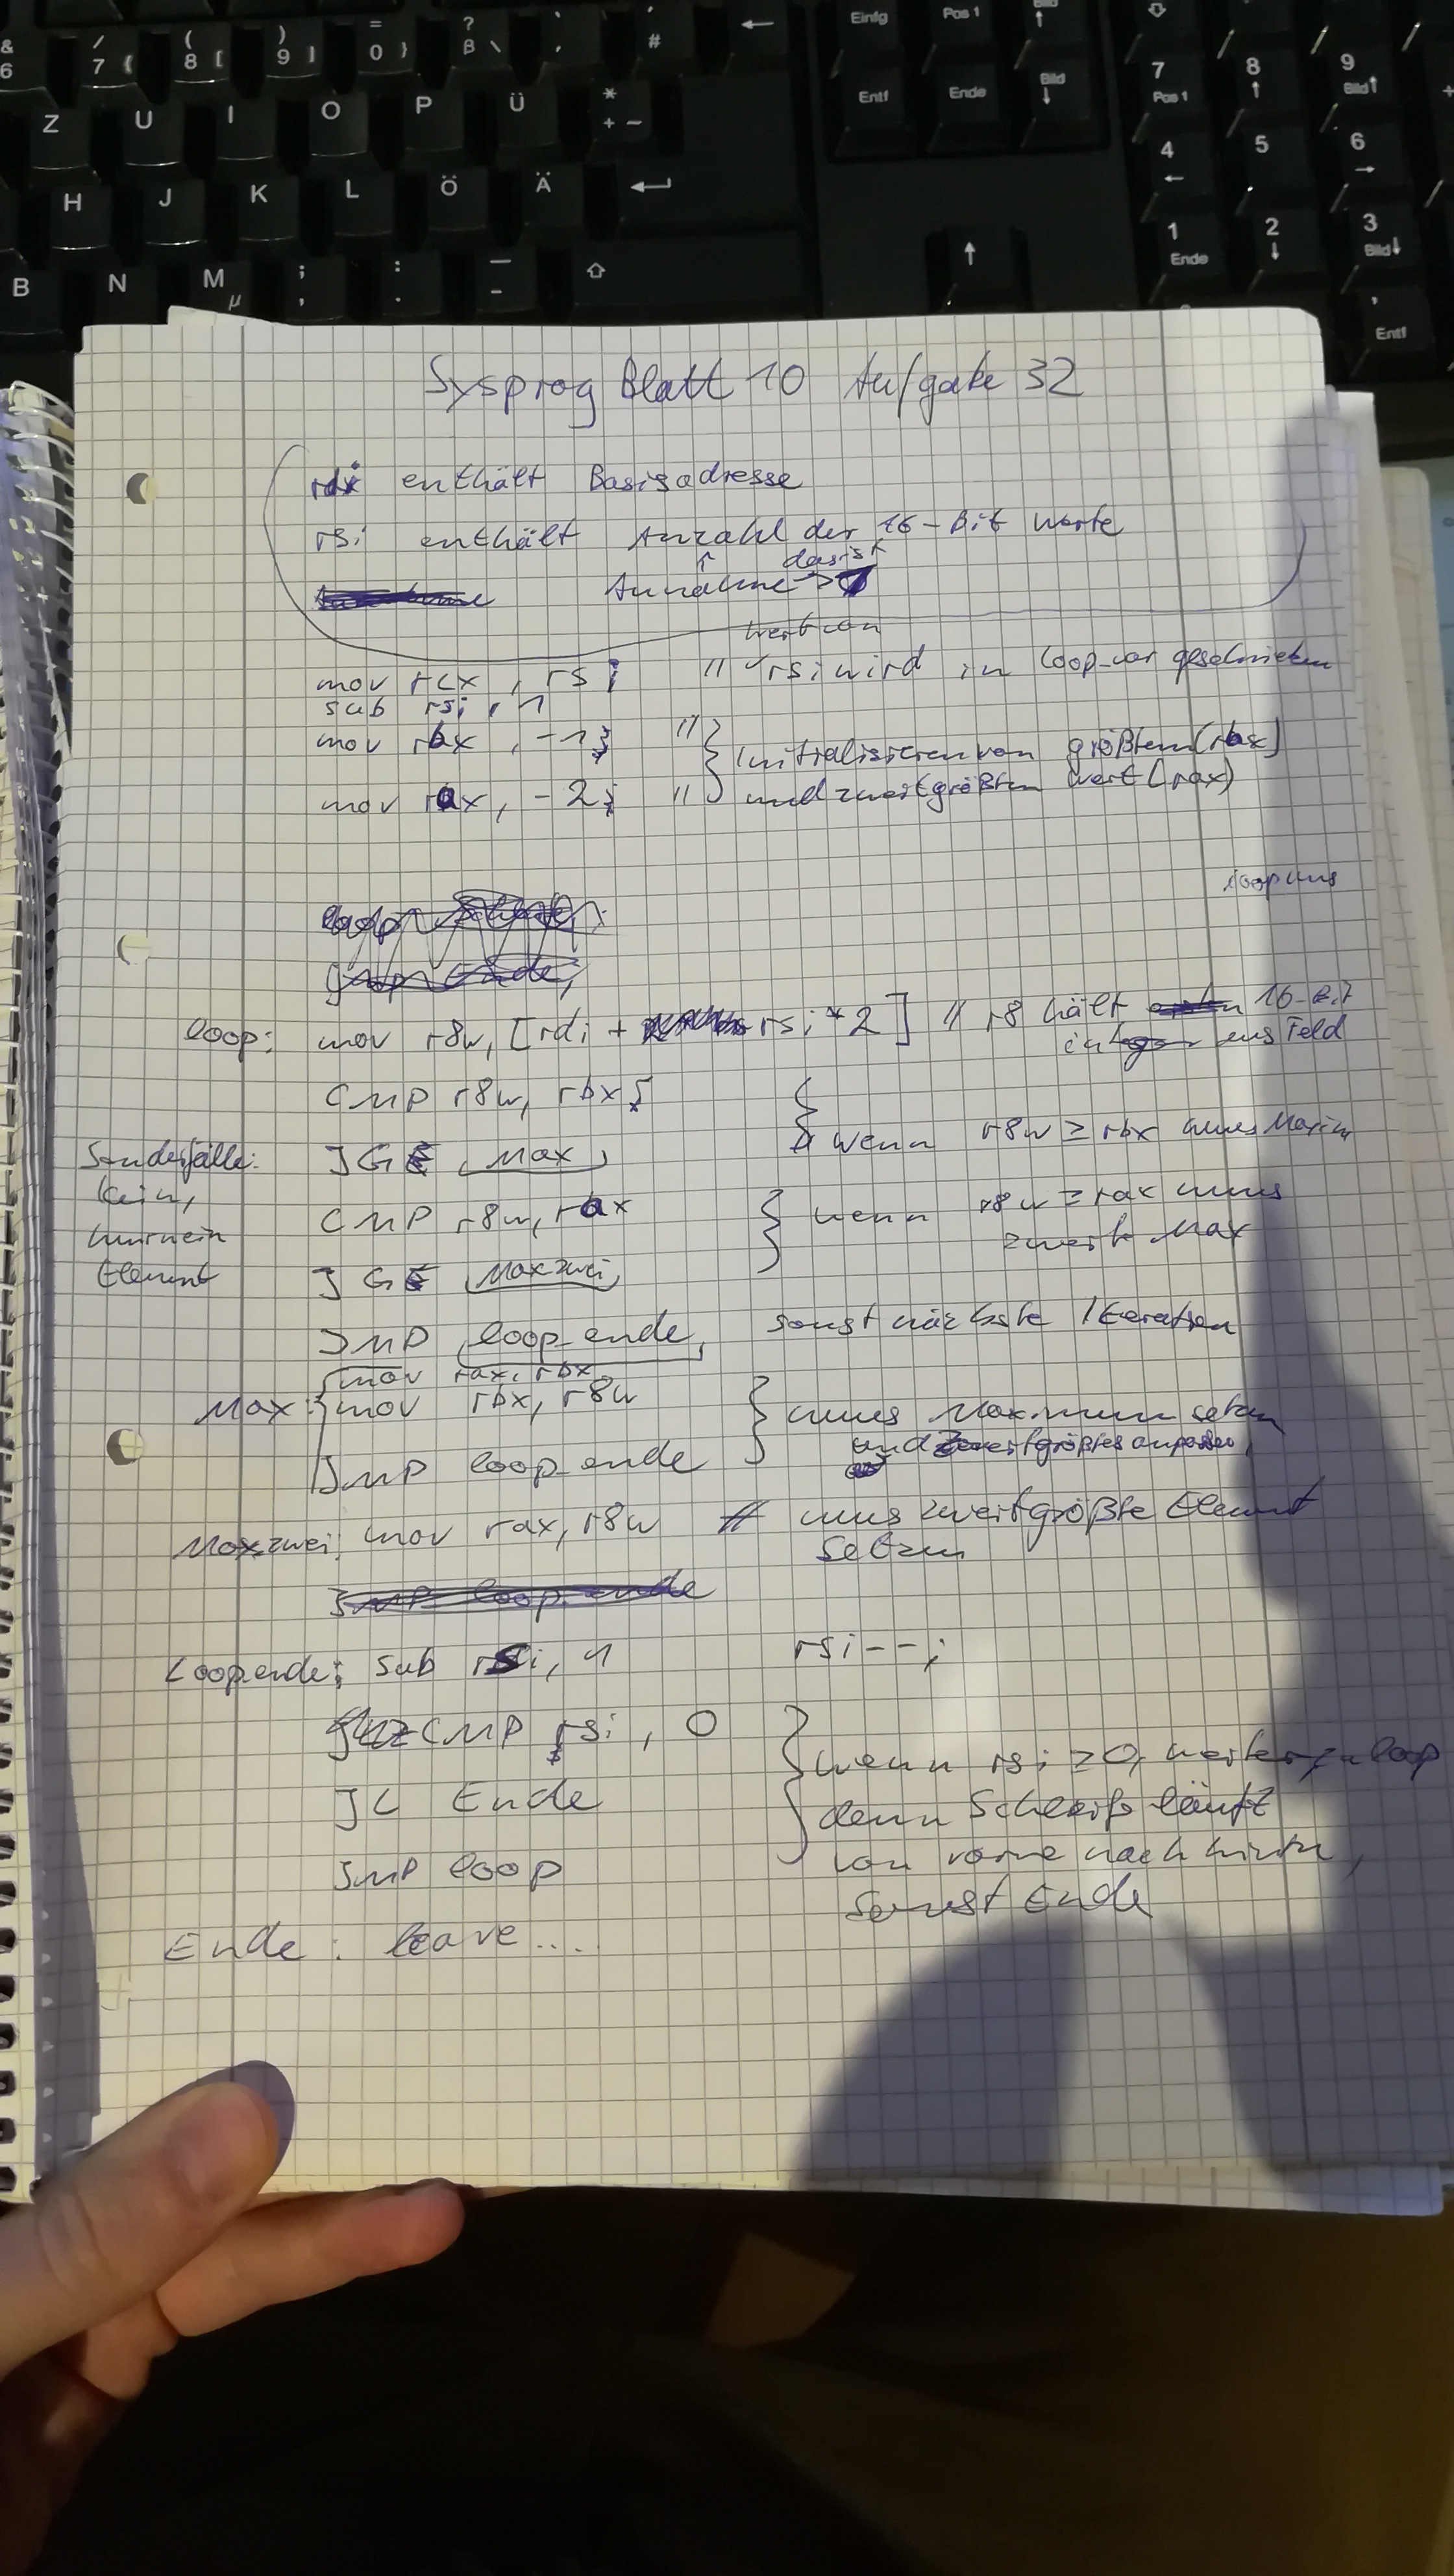 & 6 / 7 { ( 8 [ ) 9 ] = 0 } ? ß \ ` ´ ' # ← Einfg Pos 1 Bild ↑
Z U I O P Ü * + ~ Entf Ende Bild ↓ 7 Pos 1 8 ↑ 9 Bild↑ +
H J K L Ö Ä ↵ 4 ← 5 6 →
B N M µ ; , : . _ - ⇧ ↑ 1 Ende 2 ↓ 3 Bild↓
, Entf
Sysprog Blatt 10 Aufgabe 32
rdi enthält Basisadresse
rsi enthält Anzahl der 16-Bit Worte
↑ das ist
Annahme →
wert von
mov rcx, rsi // rsi wird in loop_var geschrieben
sub rsi, 1
mov rbx, -1; // } Initialisieren von größtem (rbx)
mov rax, -2; // und zweitgrößten Wert (rax)
loop: mov r8w, [rdi + rsi*2] // r8 hält 16-Bit
aus Feld
CMP r8w, rbx; {
JGE Max wenn r8w ≥ rbx neues Maxim
Sonderfälle:
kein,
nur ein
Element
CMP r8w, rax } wenn r8w ≥ rax neues
zweite Max
JGE Maxzwei
JMP loop_ende, sonst nächste Iteration
mov rax, rbx
Max: mov rbx, r8w } neues Maximum setzen
und zweitgrößtes anpassen
JMP loop_ende
Maxzwei: mov rax, r8w // neues zweitgrößte Element
setzen
JMP loop_ende
Loopende: sub rsi, 1 rsi--;
CMP rsi, 0 } wenn rsi ≥ 0, weiter zu loop
JL Ende denn Schleife läuft
JMP loop von vorne nach hinten,
sonst Ende
Ende: leave ...